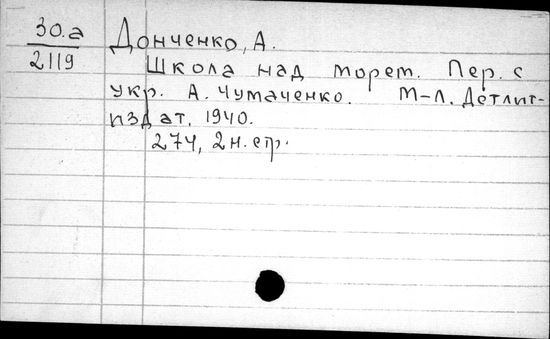 30.а
2119
Донченко, А.
Школа над морем. Пер. с
укр. А. Чумаченко. М-Л. Детлит-
издат, 1940.
274, 2 н. стр.